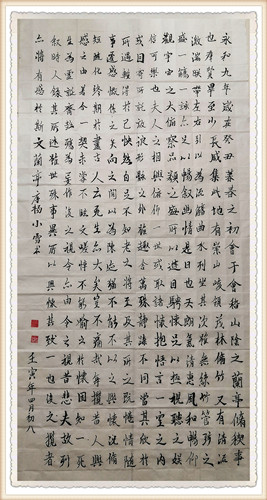 永和九年歲在癸丑暮春之初會于會稽山陰之蘭亭脩稧事
也群賢畢至少長咸集此地有崇山峻領茂林脩竹又有清流
激湍暎帶左右引以為流觴曲水列坐其次雖無絲竹管弦之
盛一觴一詠亦足以暢敘幽情是日也天朗氣清惠風和暢仰
觀宇宙之大俯察品類之盛所以遊目騁懷足以極視聽之娛
信可樂也夫人之相與俯仰一世或取諸懷抱悟言一室之內
或因寄所託放浪形骸之外雖趣舍萬殊靜躁不同當其欣於
所遇暫得於己快然自足不知老之將至及其所之既惓情隨
事遷感慨係之矣向之間以為陳迹猶不能不以之興懷況脩
短隨化終期於盡古人云死生亦大矣豈不痛哉每攬昔人興
感之由若合一契未嘗不臨文嗟悼不能喻之於懷固知一死
生為虛誕齊彭殤為妄作後之視今亦由今之視昔悲夫故列
敘時人錄其所述雖世殊事異所以興懷其致一也後之攬者
亦將有感於斯文 蘭亭序 楊小雪书
壬寅年四月初八